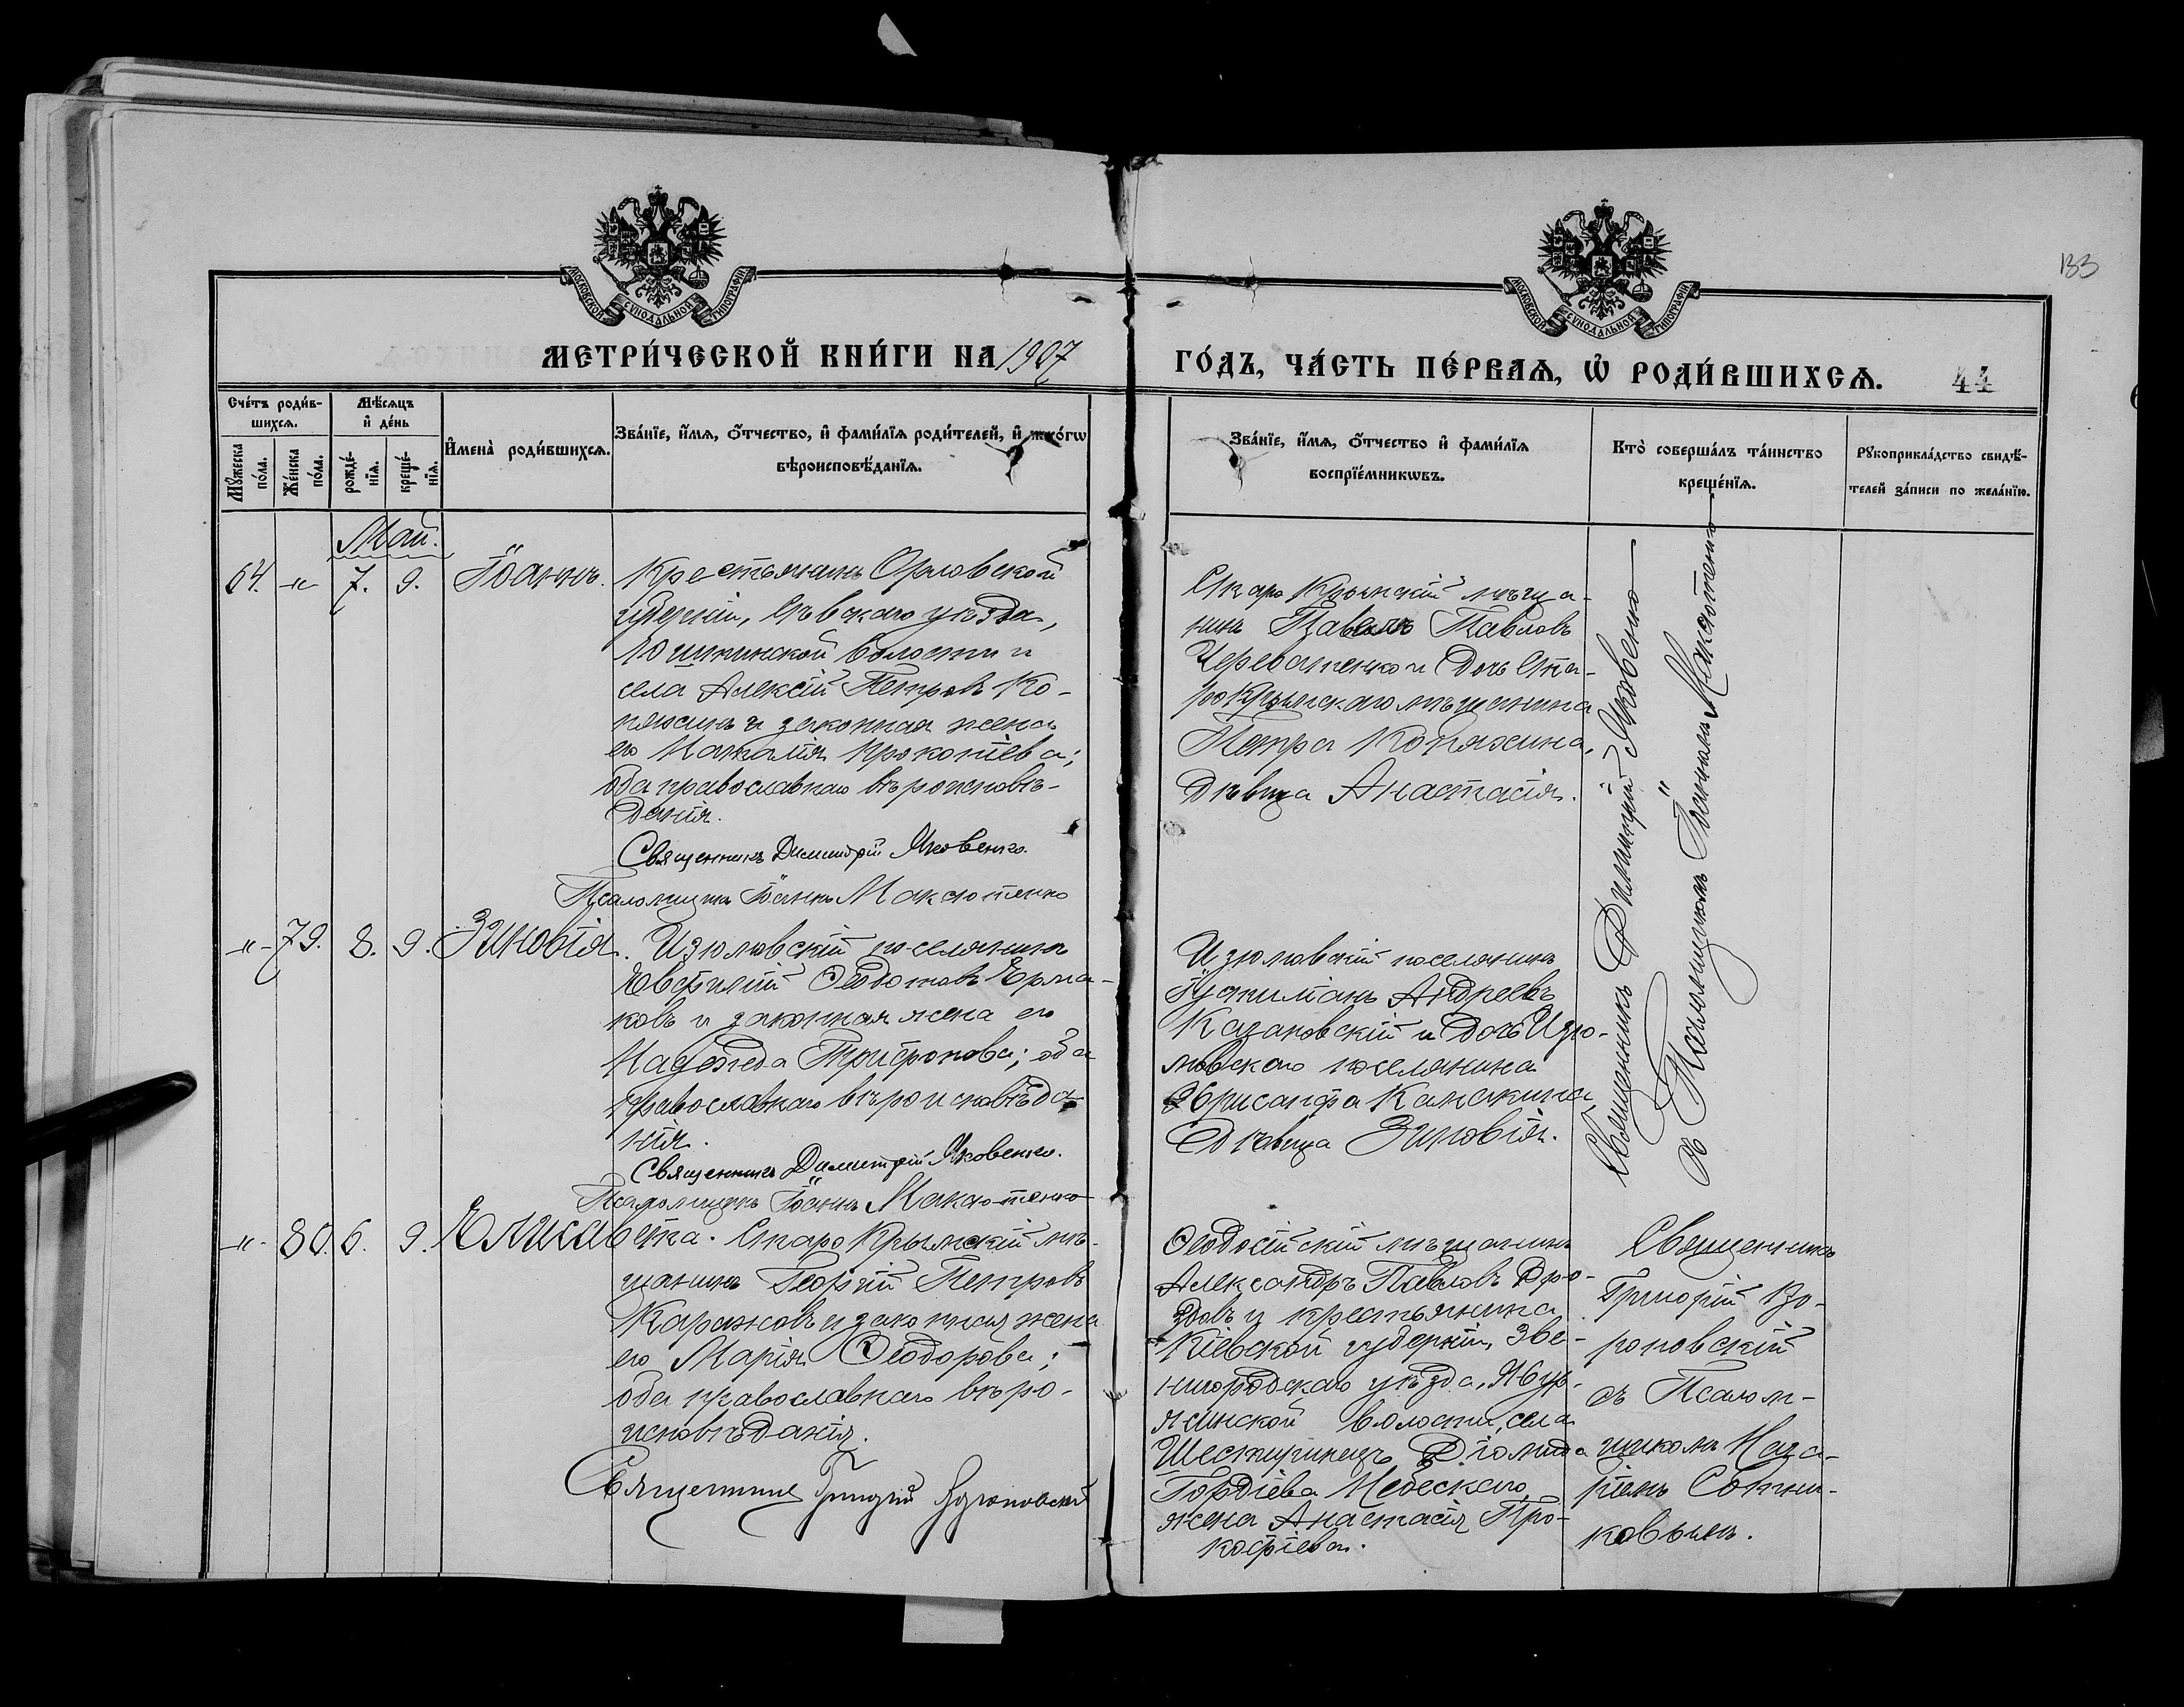 133
МОСКОВСКОЙ СУНОДАЛЬНОЙ ТИПОГРАФІИ
МОСКОВСКОЙ СУНОДАЛЬНОЙ ТИПОГРАФІИ
МЕТРИ́ЧЕСКОЙ КНИ́ГИ НА 1907
ГО́ДЪ, ЧА́СТЬ ПЕ́РВАѦ, Ѡ҆ РОДИ́ВШИХСѦ.
44
Сче́тъ роди́в-
шихсѧ.
Мѣ́сѧцъ
и҆ де́нь
Мꙋ́жеска
по́ла.
Же́нска
по́ла.
рожде́-
нїѧ.
креще́-
нїѧ.
И҆мена̀ роди́вшихсѧ.
Зва́нїе, и҆́мѧ, ѻ҆́тчество, и҆ фами́лїѧ роди́телей, и҆
вѣроисповѣ́данїѧ.
Зва́нїе, и҆́мѧ, ѻ҆́тчество и҆ фами́лїѧ
воспрїе́мникѡвъ.
Кто̀ соверша́лъ та́инство
креще́нїѧ.
Рꙋкоприкла́дство свидѣ́-
телей за́писи по жела́нїю.
Май.
64. -"- 7. 9. Іоаннъ.
Крестьянинъ Орловской
губерніи, Сѣвскаго уѣзда,
волости и
села Алексій Петровъ Ко-
пяхинъ и законная жена
его Наталія Прокопіева;
оба православнаго вѣроисповѣ-
данія.
Священникъ Димитрій Яковенко.
Псаломщикъ Іоаннъ Максютенко
Старо Крымскій мѣща-
нинъ Павелъ Павловъ
Череватенко и дочь Ста-
ро Крымскаго мѣщанина
Петра Копяхина,
дѣвица Анастасія.
Священникъ Димитрій Яковенко
съ Псаломщикомъ Іоанномъ Максютенко
-"- 79. 8. 9. Зиновія.
Изюмовскій поселянинъ
Евфимій Ѳеодотовъ Ерма-
ковъ и законная жена его
Надежда Трифонова; оба
православнаго вѣроисповѣда-
нія.
Священникъ Димитрій Яковенко.
Псаломщикъ Іоаннъ Максютенко
Изюмовскій поселянинъ
Андреевъ
Казановскій и дочь Изю-
мовскаго поселянина
Хрисанфа Канакина
дѣвица Зиновія.
-"- 80. 6. 9. Елисавета.
Старо Крымскій мѣ-
щанинъ Георгій Петровъ
Каражовъ и законная жена
его Марія Ѳеодорова;
оба православнаго вѣро-
исповѣданія.
Священникъ Григорій
Ѳеодосійскій мѣщанинъ
Александръ Павловъ Дро-
здовъ и крестьянина
Кіевской губерніи, Зве-
нигородскаго уѣзда,
волости, села
Шестиринецъ Діомида
Гордіева
жена Анастасія Про-
кофіева.
Священникъ
Григорій
роновскій
съ Псалом-
щикомъ Наза-
ріемъ Сотни-
ковымъ.